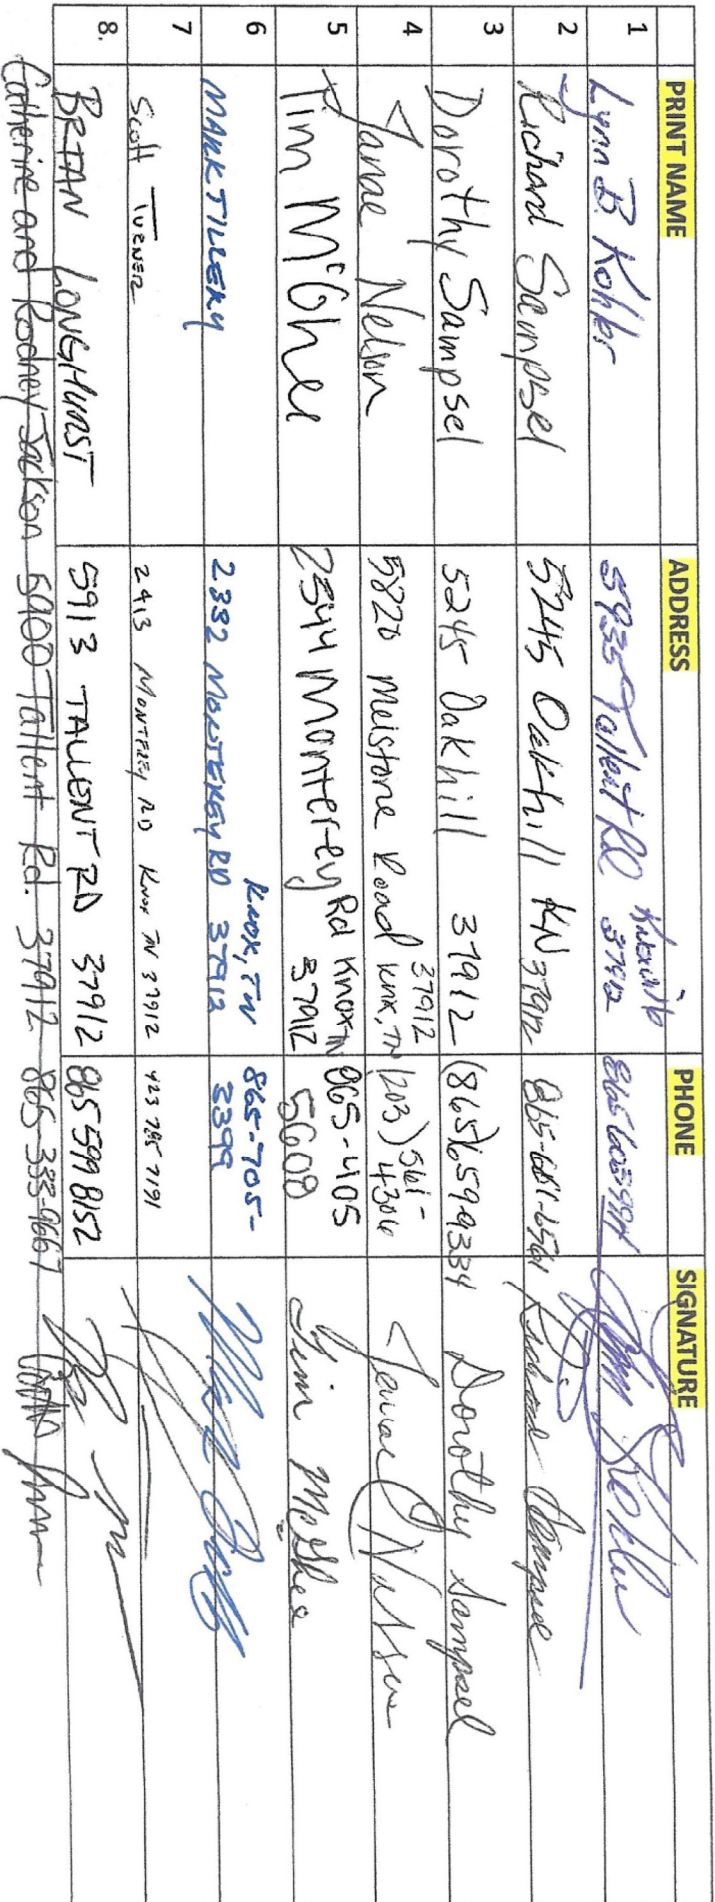 PRINT NAME ADDRESS PHONE SIGNATURE
1 Lynn B. Kohler 5935 Tallent Rd Knoxville 37912 Lynn Kohler
2 Richard Sampsel 5245 Oakhill KN 37912 865-681-6561 Richard Sampsel
3 Dorothy Sampsel 5245 Oakhill 37912 (865)6599334 Dorothy Sampsel
4 Janae Nelson 5820 Melstone Road Knx, TN 37912 (203) 561-4306 Janae Nelson
5 Tim McGhee 2544 Monterey Rd Knox TN 37912 865-405-5608 Tim McGhee
6 MARK TILLERY 2332 MONTEREY RD KNOX, TN 37912 865-705-3399
7 Scott TURNER 2413 MONTEREY RD KNOX TN 37912 423 785 7191
8. BRIAN LONGHURST 5913 TALLENT RD 37912 865 599 8152
Catherine and Rodney Jackson 5900 Tallent Rd. 37912 865-333-9667